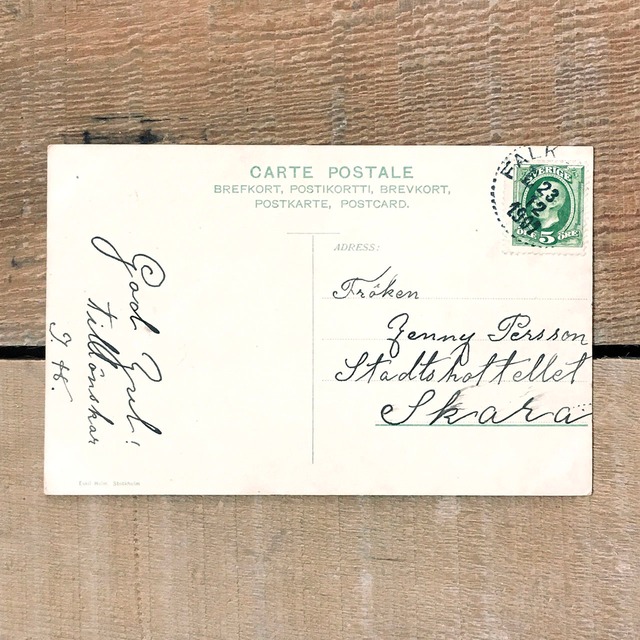 CARTE POSTALE
BREFKORT, POSTIKORTTI, BREVKORT,
POSTKARTE, POSTCARD.
FALK
SVERIGE
23
12
ÖRE 5 ÖRE
ADRESS:
Fröken
Jenny Persson
Stadtshottellet
Skara
God Jul!
tillönskar
J. H.
Stockholm